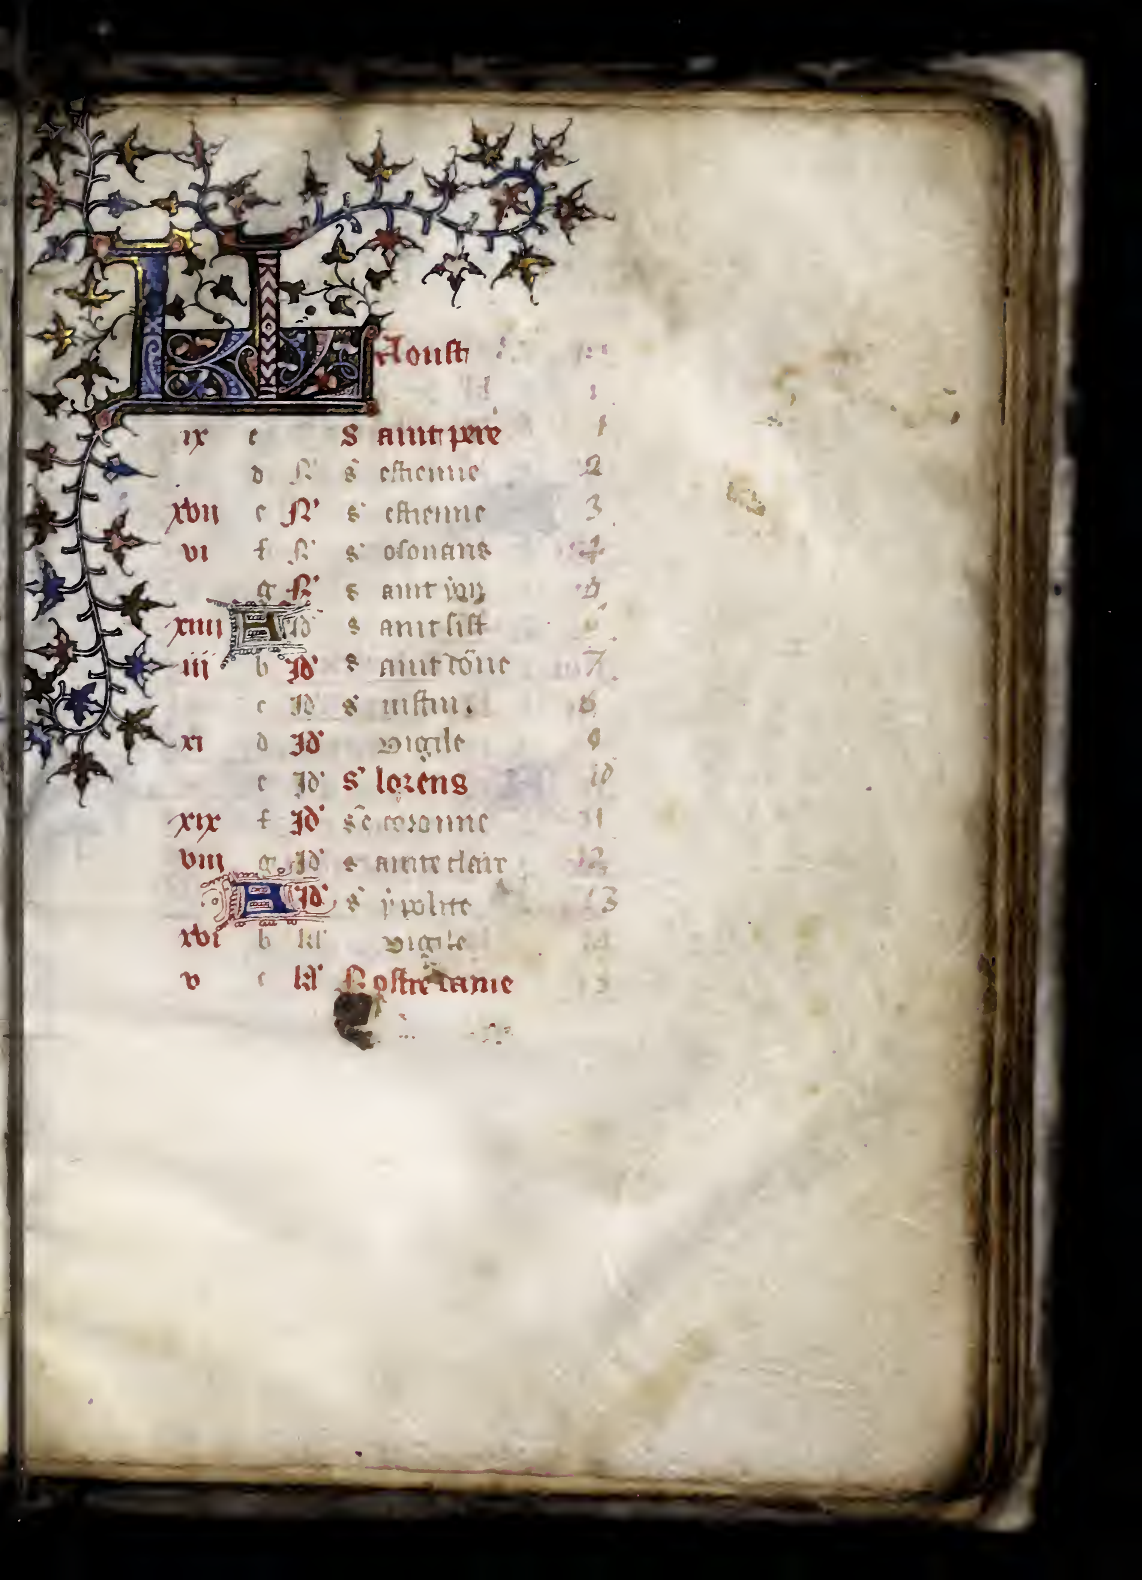 KL Aoust
ix c S aint pere 1
d N' s' estienne 2
xvii e N' s' estienne 3
vi f N' s' osouans 4
g N' s aint yon 5
xiiii A Id' s aint sist 6
iii b Id' s aint 7
c Id' s' iustin. 8
xi d Id' vigile 9
e Id' s' lorens 10
xix f Id' sē coronne 11
viii g Id' s ainte clair 12
A Id' s' ypolite 13
xvi b kl' vigile
v c kl' Nostre dame